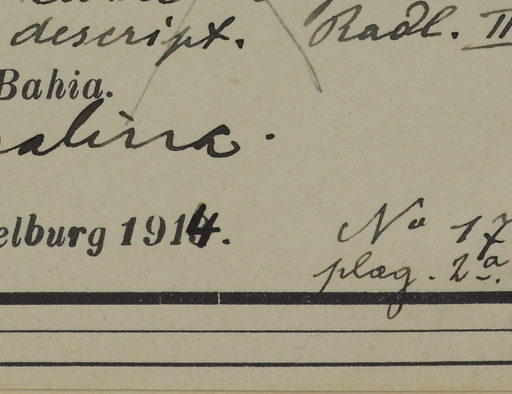 descript. Radl. II
Bahia.
alina.
elburg 1914.
Nº 17
plag. 2a.